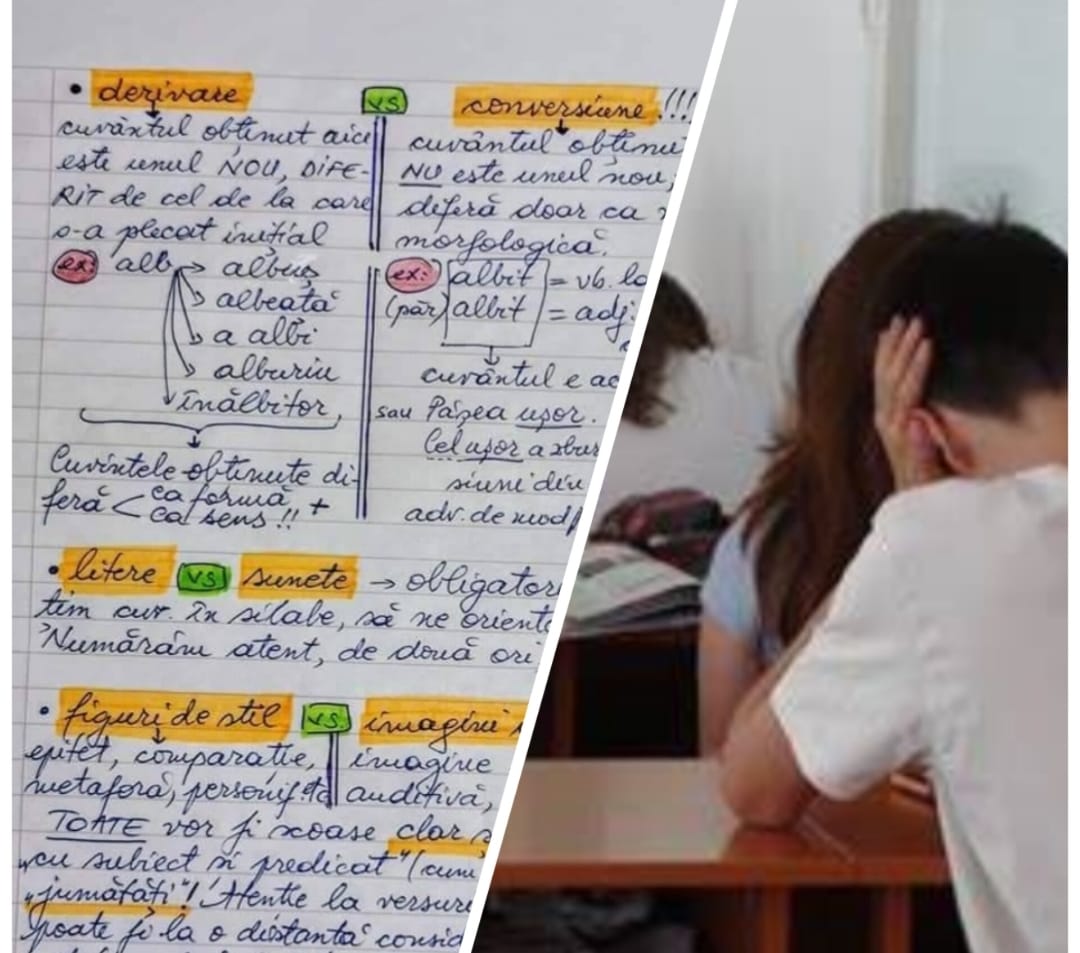 • derivare vs conversiune !!!
cuvântul obținut aici
este unul NOU, DIFE-
RIT de cel de la care
s-a plecat inițial
ex: alb → albuș
albeață
a albi
alburiu
înălbitor,
Cuvintele obținute di-
feră < ca formă +
ca sens !!
cuvântul obținu
NU este unul nou,
diferă doar ca
morfologică.
ex: albit = vb. la
(păr) albit = adj.
cuvântul e ac
sau Pășea ușor.
Cel ușor a zbur
siuni din
adv. de mod
• litere vs sunete → obligator
țim cuv. în silabe, să ne orient
Numărăm atent, de două ori
• figuri de stil vs. imagini
epitet, comparație,
metaforă, personif. etc
imagine
auditivă,
TOATE vor fi scoase clar
„cu subiect și predicat" (cum
„jumătăți"! Atenție la versur
poate fi la o distanță consid